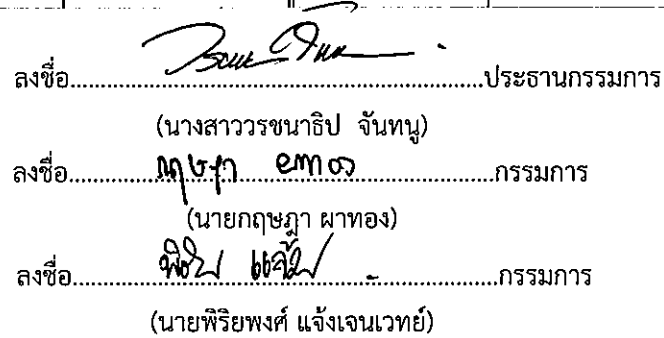 ลงชื่อ....................ประธานกรรมการ
(นางสาววรชนาธิป จันทนู)
ลงชื่อ....................กรรมการ
(นายกฤษฎา ผาทอง)
ลงชื่อ....................กรรมการ
(นายพิริยพงศ์ แจ้งเจนเวทย์)